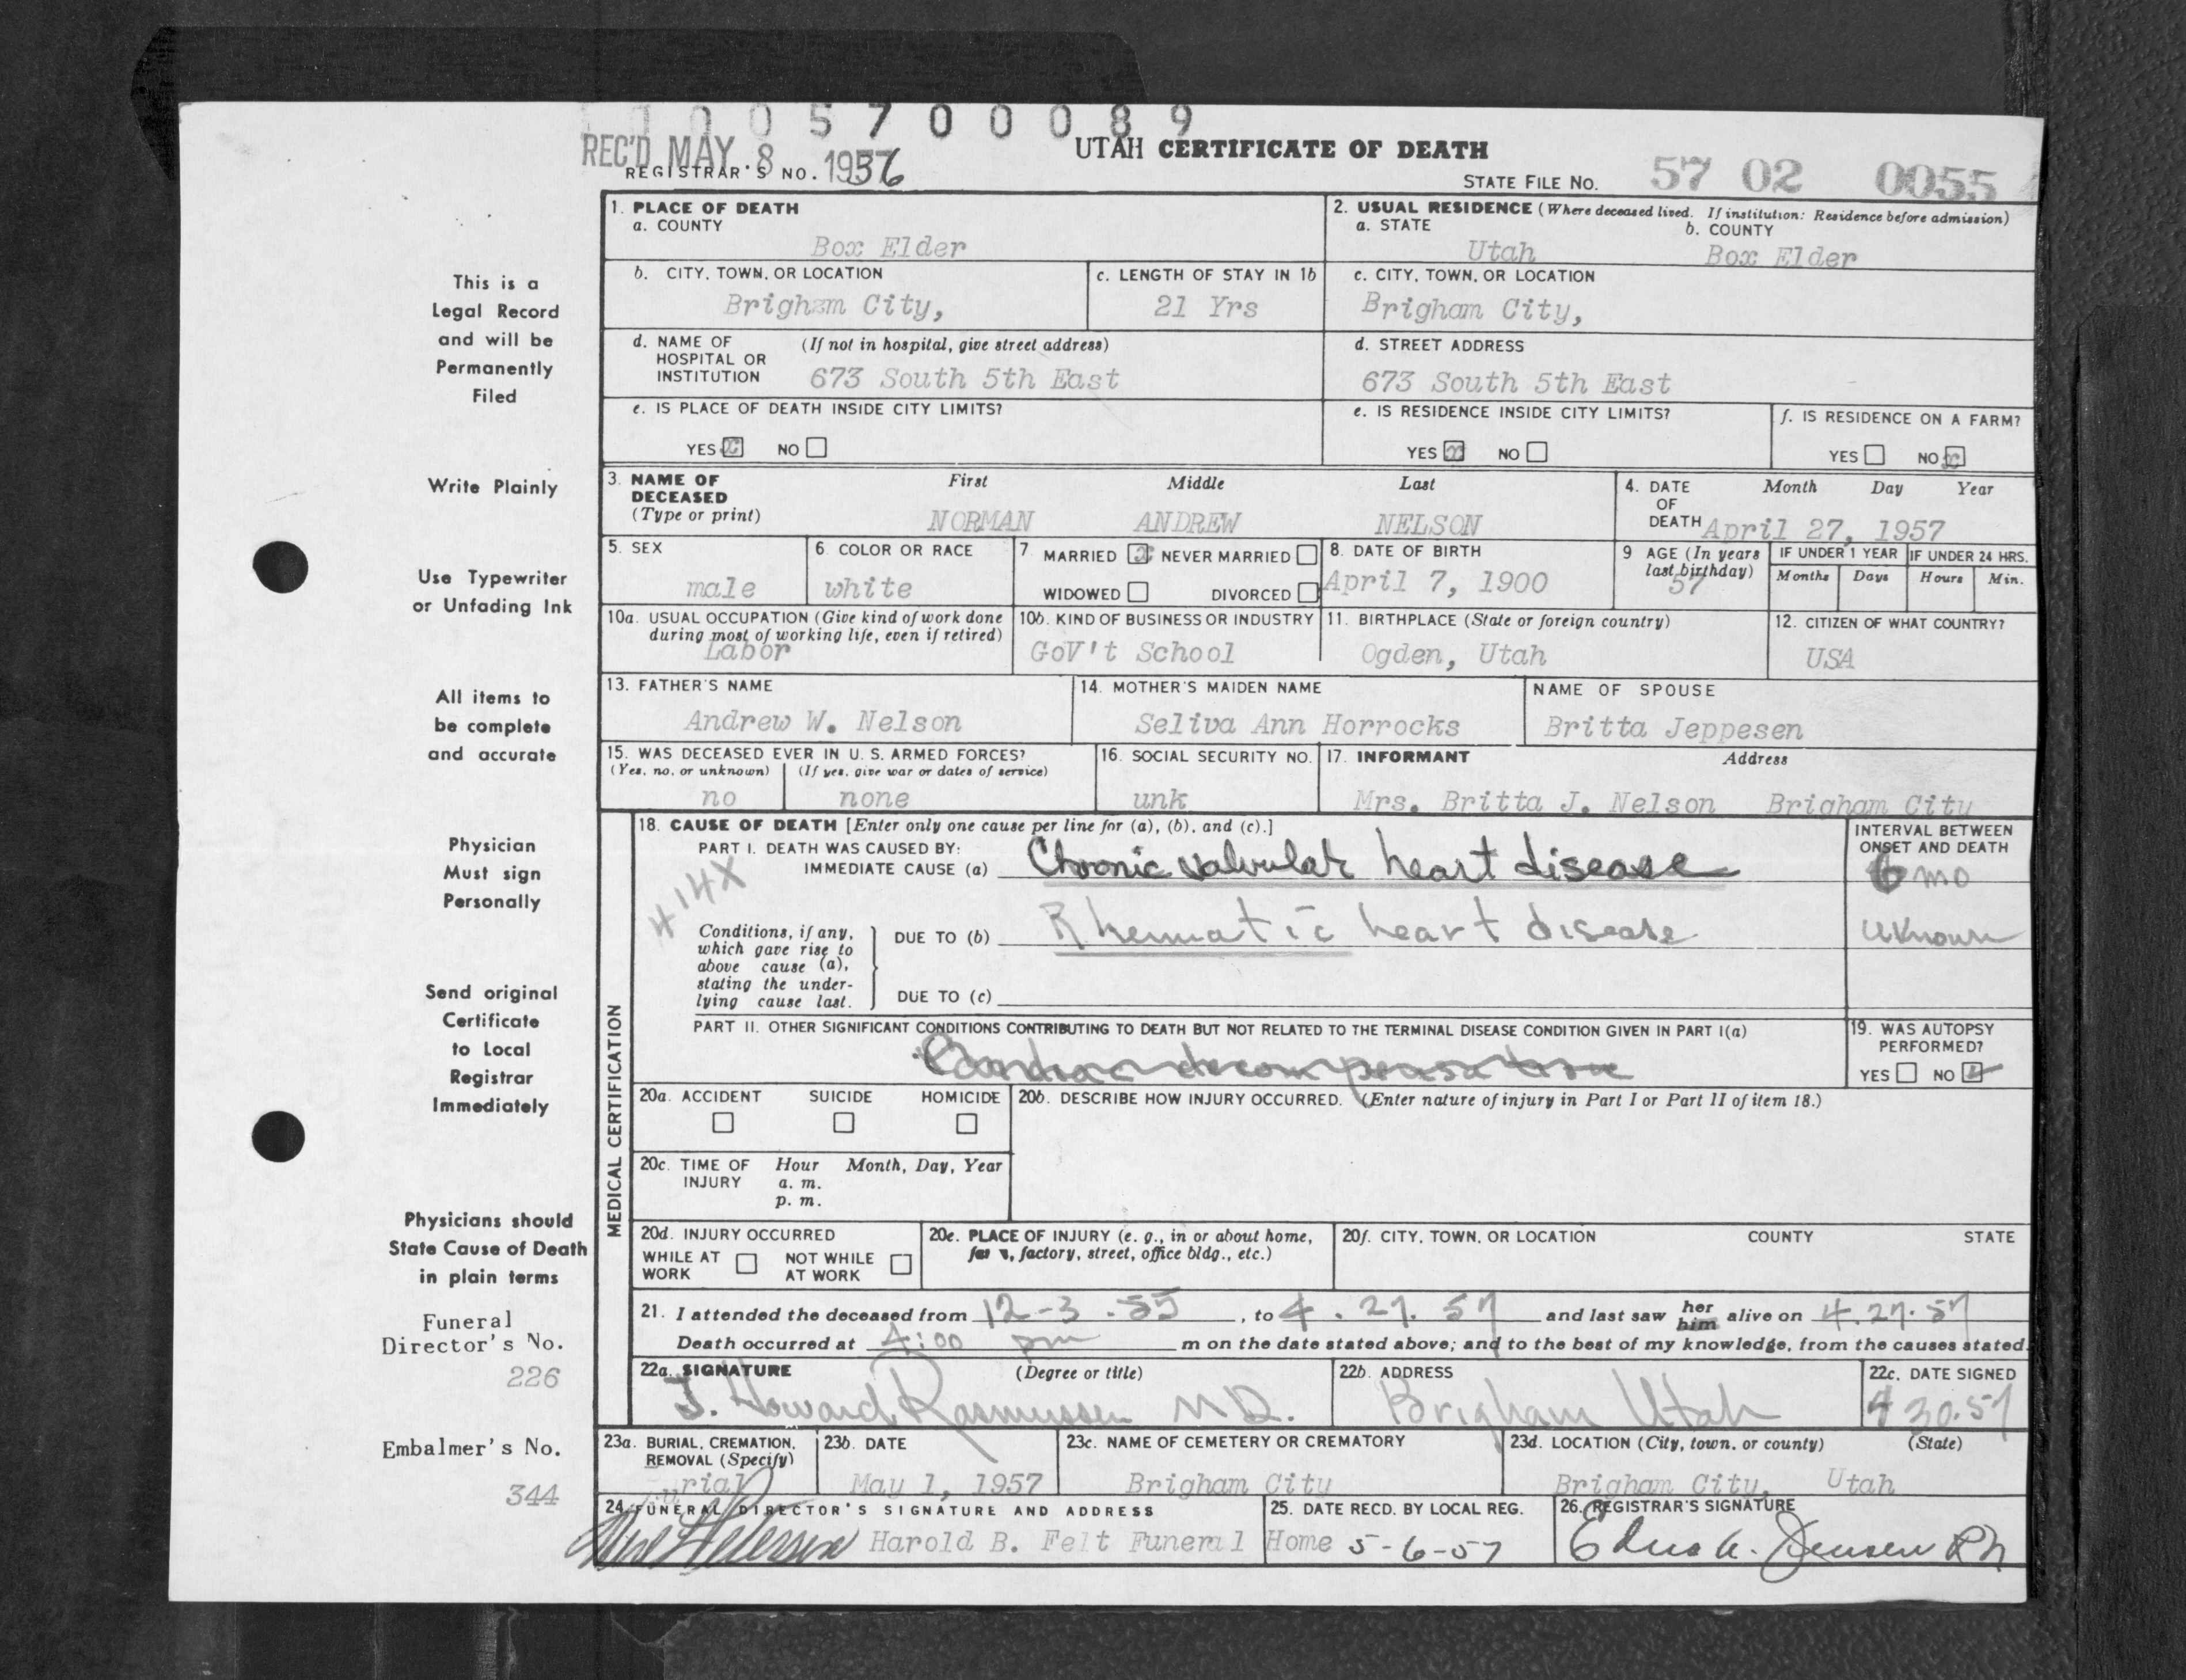 0 0 5 7 0 0 0 8 9
REC'D MAY 8 1957
UTAH CERTIFICATE OF DEATH
REGISTRAR'S NO. 36
STATE FILE NO. 57 02 0055
1. PLACE OF DEATH
a. COUNTY
Box Elder
2. USUAL RESIDENCE (Where deceased lived. If institution: Residence before admission)
a. STATE b. COUNTY
Utah Box Elder
b. CITY, TOWN, OR LOCATION
Brigham City,
c. LENGTH OF STAY IN 1b
21 Yrs
c. CITY, TOWN, OR LOCATION
Brigham City,
d. NAME OF (If not in hospital, give street address)
HOSPITAL OR
INSTITUTION 673 South 5th East
d. STREET ADDRESS
673 South 5th East
e. IS PLACE OF DEATH INSIDE CITY LIMITS?
YES x NO
e. IS RESIDENCE INSIDE CITY LIMITS?
YES x NO
f. IS RESIDENCE ON A FARM?
YES NO x
3. NAME OF DECEASED (Type or print)
First Middle Last
NORMAN ANDREW NELSON
4. DATE OF DEATH Month Day Year
April 27, 1957
5. SEX
male
6. COLOR OR RACE
white
7. MARRIED x NEVER MARRIED
WIDOWED DIVORCED
8. DATE OF BIRTH
April 7, 1900
9 AGE (In years last birthday)
57
IF UNDER 1 YEAR
Months Days
IF UNDER 24 HRS.
Hours Min.
10a. USUAL OCCUPATION (Give kind of work done
during most of working life, even if retired)
Labor
10b. KIND OF BUSINESS OR INDUSTRY
GoV't School
11. BIRTHPLACE (State or foreign country)
Ogden, Utah
12. CITIZEN OF WHAT COUNTRY?
USA
13. FATHER'S NAME
Andrew W. Nelson
14. MOTHER'S MAIDEN NAME
Seliva Ann Horrocks
NAME OF SPOUSE
Britta Jeppesen
15. WAS DECEASED EVER IN U. S. ARMED FORCES?
(Yes, no, or unknown) (If yes, give war or dates of service)
no none
16. SOCIAL SECURITY NO.
unk
17. INFORMANT Address
Mrs. Britta J. Nelson Brigham City
MEDICAL CERTIFICATION
18. CAUSE OF DEATH [Enter only one cause per line for (a), (b), and (c).]
PART I. DEATH WAS CAUSED BY:
IMMEDIATE CAUSE (a) Chronic valvular heart disease
INTERVAL BETWEEN
ONSET AND DEATH
6 mo
414X
Conditions, if any,
which gave rise to
above cause (a),
stating the under-
lying cause last.
DUE TO (b) Rheumatic heart disease
uknown
DUE TO (c)
PART II. OTHER SIGNIFICANT CONDITIONS CONTRIBUTING TO DEATH BUT NOT RELATED TO THE TERMINAL DISEASE CONDITION GIVEN IN PART I(a)
Cardiac decompensation
19. WAS AUTOPSY
PERFORMED?
YES NO
20a. ACCIDENT SUICIDE HOMICIDE
20b. DESCRIBE HOW INJURY OCCURRED. (Enter nature of injury in Part I or Part II of item 18.)
20c. TIME OF Hour Month, Day, Year
INJURY a. m.
p. m.
20d. INJURY OCCURRED
WHILE AT WORK NOT WHILE AT WORK
20e. PLACE OF INJURY (e. g., in or about home,
farm, factory, street, office bldg., etc.)
20f. CITY, TOWN, OR LOCATION COUNTY STATE
21. I attended the deceased from 12-3.55, to 4.27.57 and last saw her him alive on 4.27.57
Death occurred at 4:00 pm m on the date stated above; and to the best of my knowledge, from the causes stated.
22a. SIGNATURE (Degree or title)
J. Howard Rasmussen M D.
22b. ADDRESS
Brigham Utah
22c. DATE SIGNED
4 30.57
23a. BURIAL, CREMATION,
REMOVAL (Specify)
Burial
23b. DATE
May 1, 1957
23c. NAME OF CEMETERY OR CREMATORY
Brigham City
23d. LOCATION (City, town, or county) (State)
Brigham City, Utah
24. FUNERAL DIRECTOR'S SIGNATURE AND ADDRESS
Harold B. Felt Funeral Home
25. DATE RECD. BY LOCAL REG.
5-6-57
26. REGISTRAR'S SIGNATURE
Edna A. Jensen RN
This is a
Legal Record
and will be
Permanently
Filed
Write Plainly
Use Typewriter
or Unfading Ink
All items to
be complete
and accurate
Physician
Must sign
Personally
Send original
Certificate
to Local
Registrar
Immediately
Physicians should
State Cause of Death
in plain terms
Funeral
Director's No.
226
Embalmer's No.
344